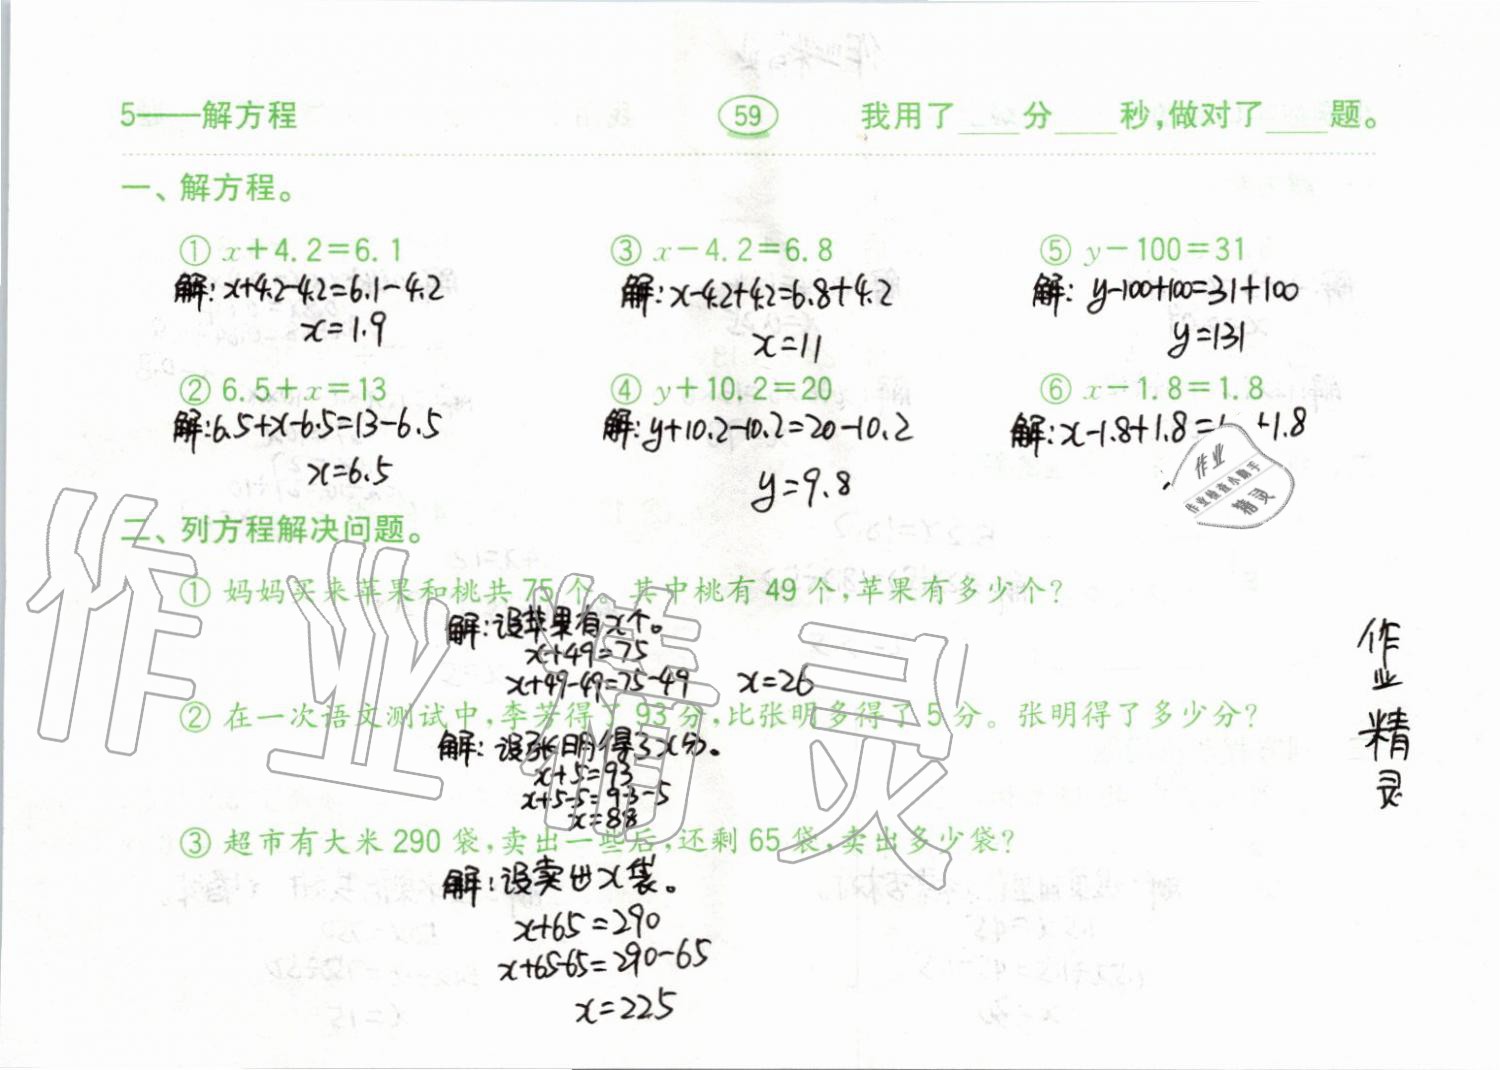 5——解方程 59 我用了____分____秒,做对了____题。
一、解方程。
① x+4.2=6.1 ③ x-4.2=6.8 ⑤ y-100=31
解:x+4.2-4.2=6.1-4.2 解:x-4.2+4.2=6.8+4.2 解:y-100+100=31+100
x=1.9 x=11 y=131
② 6.5+x=13 ④ y+10.2=20 ⑥ x-1.8=1.8
解:6.5+x-6.5=13-6.5 解:y+10.2-10.2=20-10.2 解:x-1.8+1.8= +1.8
x=6.5 y=9.8
作业
作业检查小助手
精灵
二、列方程解决问题。
① 妈妈买来苹果和桃共75个。其中桃有49个,苹果有多少个?
解:设苹果有x个。
x+49=75
x+49-49=75-49 x=26
② 在一次语文测试中,李芳得了93分,比张明多得了5分。张明得了多少分?
解:设张明得了x分。
x+5=93
x+5-5=93-5
x=88
③ 超市有大米290袋,卖出一些后,还剩65袋,卖出多少袋?
解:设卖出x袋。
x+65=290
x+65-65=290-65
x=225
作业精灵
作业精灵